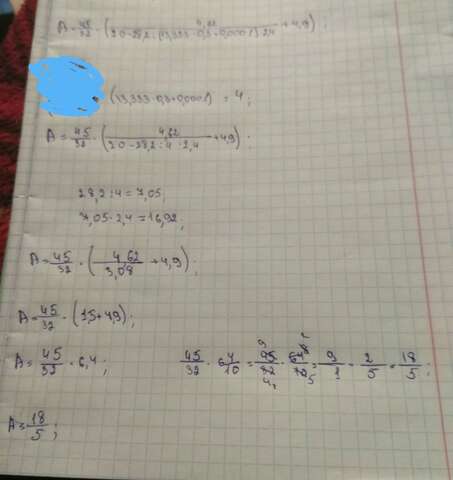 A = 45/32 · (4,62/(20-28,2 : (13,333·0,3+0,0001)·2,4) + 4,9);
(13,333·0,3+0,0001) = 4;
A = 45/32 · (4,62/(20-28,2:4·2,4) + 4,9);
28,2:4=7,05;
7,05·2,4=16,92;
A = 45/32 · (4,62/3,08 + 4,9);
A = 45/32 · (1,5+4,9);
A = 45/32 · 6,4; 45/32 · 64/10 = 45/32 · 64/10 = 9/1 · 2/5 = 18/5;
A = 18/5;